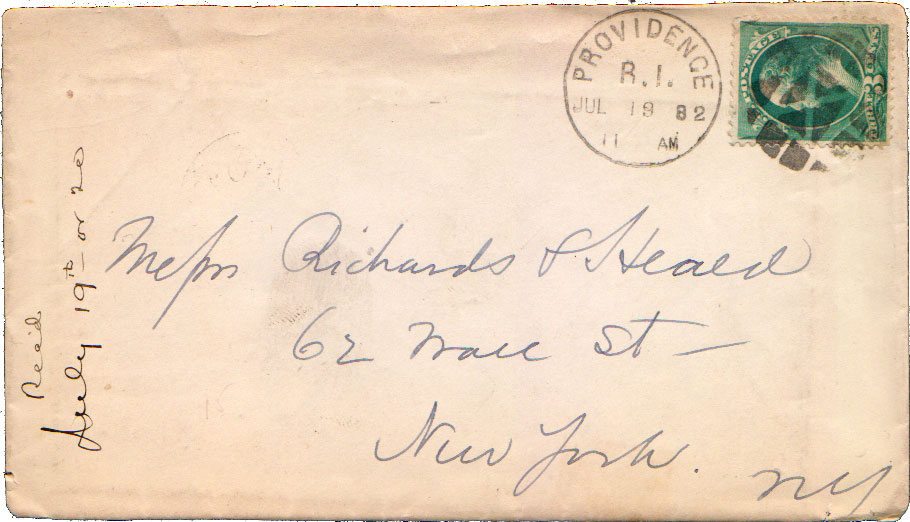 PROVIDENCE
R.I.
JUL 19 82
11 AM
POSTAGE
Messrs Richards & Heald
62 Wall St
New York.
NY
Rec'd
July 19th or 20